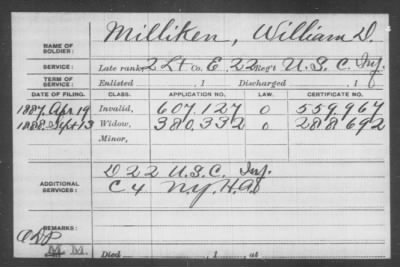 NAME OF SOLDIER: Milliken, William D.
SERVICE: Late rank, 2 Lt Co. E, 22 Reg't U. S. C. Inf.
TERM OF SERVICE: Enlisted , 1 Discharged , 1
DATE OF FILING. CLASS. APPLICATION NO. LAW. CERTIFICATE NO.
1887 Apr 19 Invalid, 607,127 0 559,967
1888 Sept 13 Widow, 380,332 0 288,692
Minor,
ADDITIONAL SERVICES: D 22 U.S.C. Inf.
C 4 N.Y. H.A.
REMARKS:
M. M.
Died , 1 , at